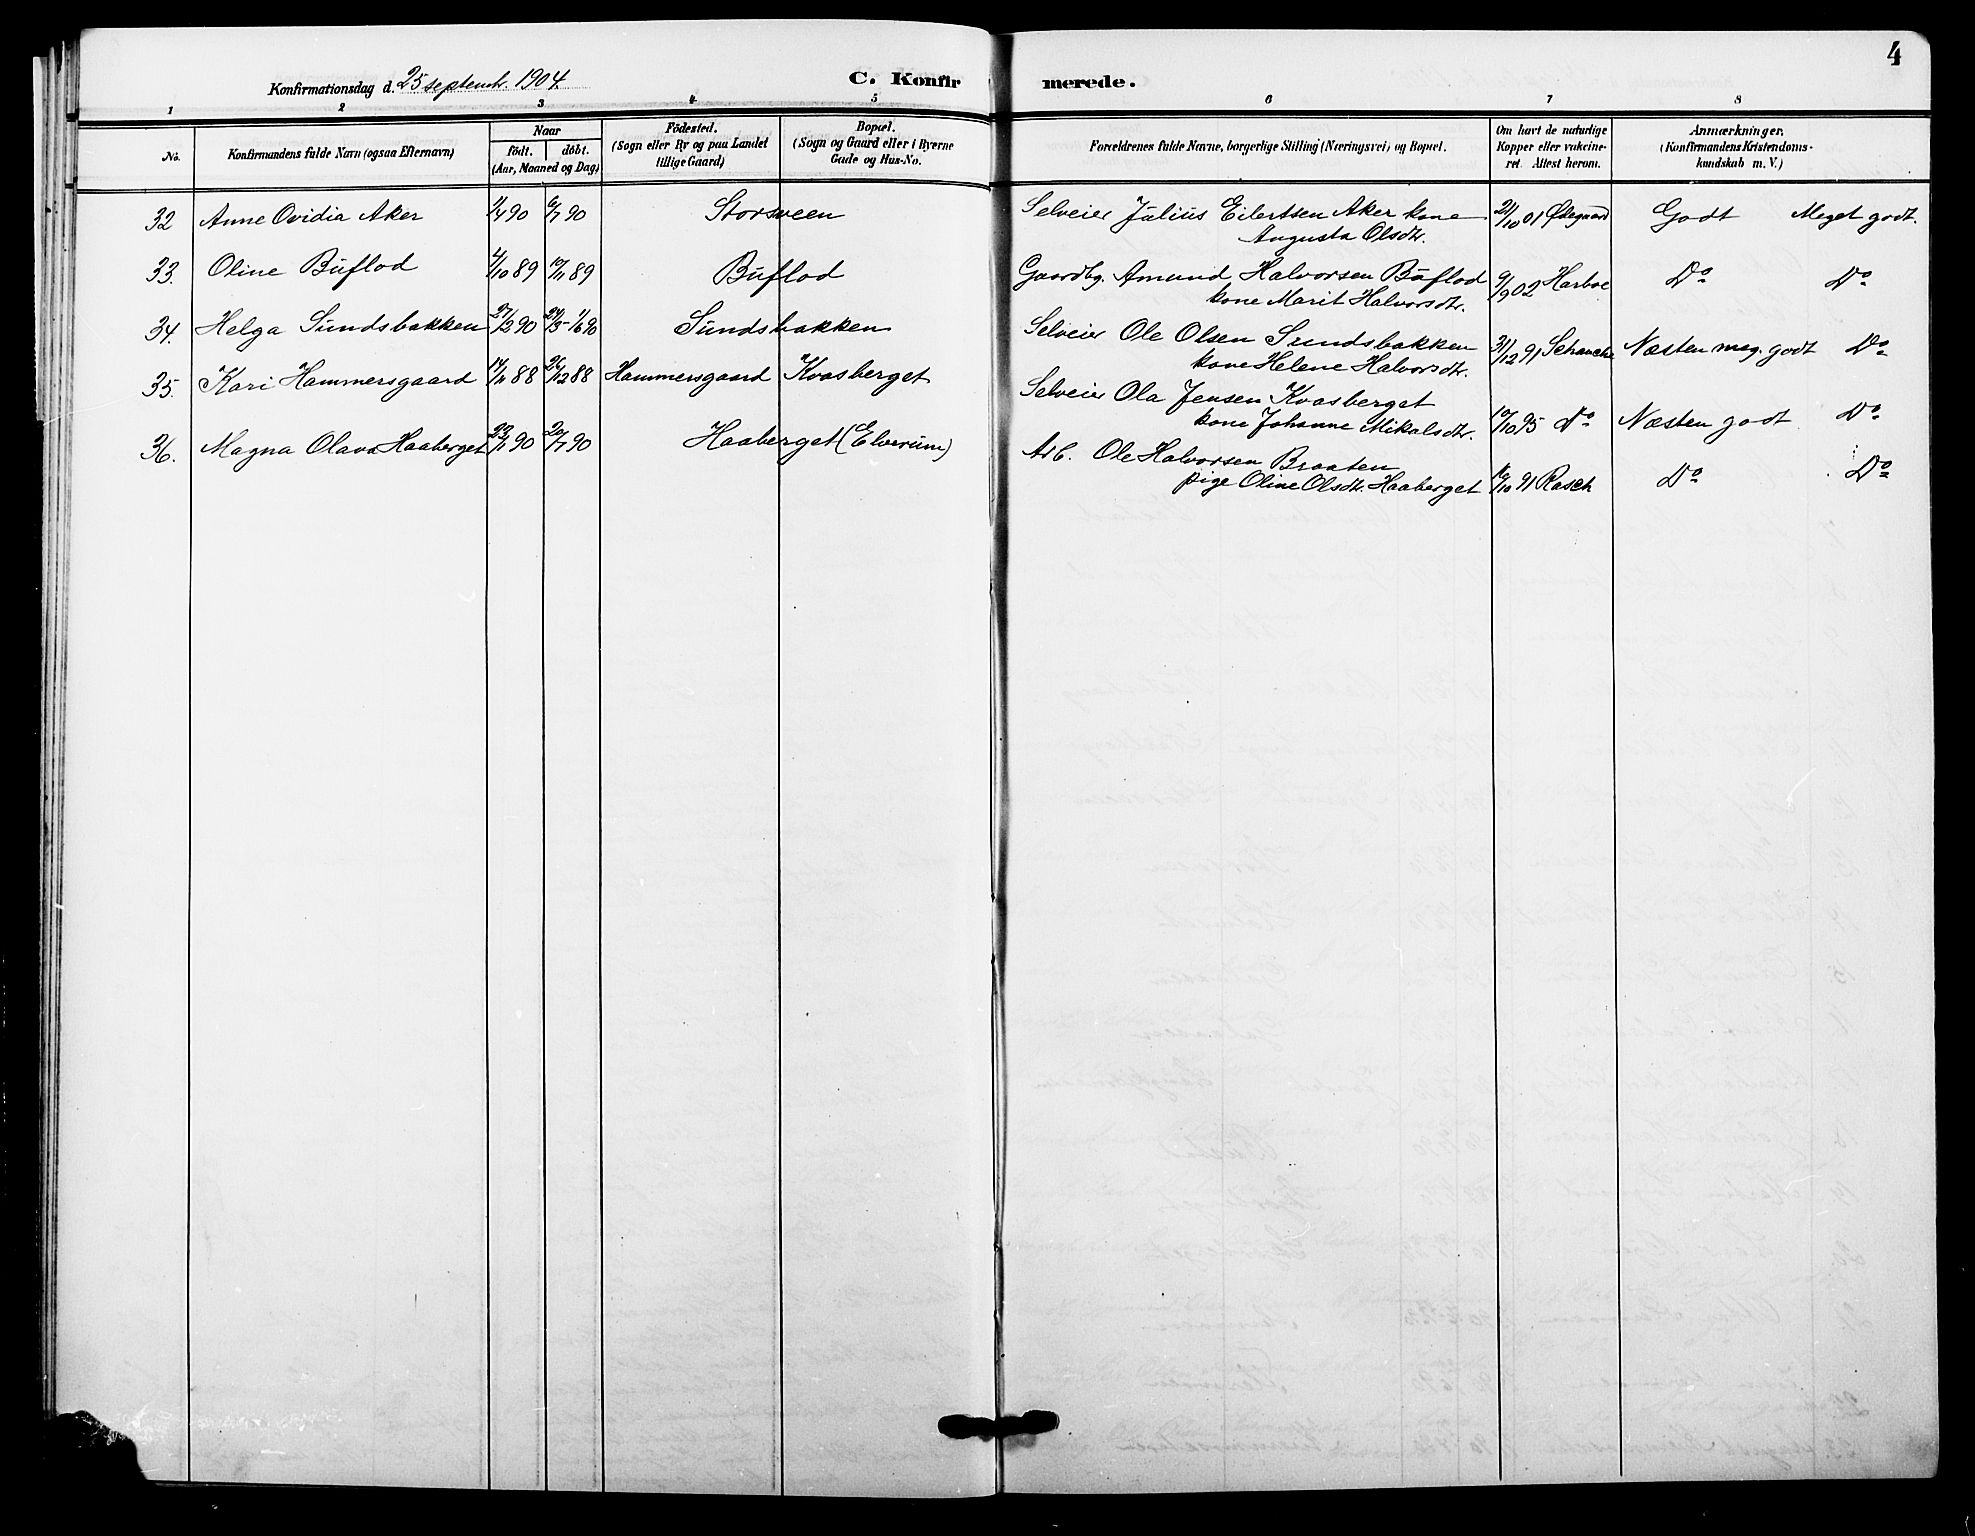 4
Konfirmationsdag d. 25 septembr. 1904. C. Konfirmerede.
1 2 3 4 5 6 7 8
No. Konfirmandens fulde Navn (ogsaa Efternavn) Naar födt. döbt. (Aar, Maaned og Dag) Födested. (Sogn eller By og paa Landet tillige Gaard) Bopæl. (Sogn og Gaard eller i Byerne Gade og Hus-No. Forældrenes fulde Navne, borgerlige Stilling (Næringsvei) og Bopæl. Om havt de naturlige Kopper eller vakcineret. Attest herom. Anmærkninger. (Konfirmandens Kristendomskundskab m. V.)
32 Anne Ovidia Aker 1/4 90 6/7 90 Storsveen Selveier Julius Eilertsen Aker kone 21/10 01 Ødegaard Godt Meget godt.
Augusta Olsdtr.
33. Oline Buflod 4/10 89 17/11 89 Buflod Gaardbg. Amund Halvorsen Buflod 9/9 02 Harboe Do Do
kone Marit Halvorsdtr.
34. Helga Sundsbakken 27/2 90 29/5 - 1/6 90 Sundsbakken Selveier Ole Olsen Sundsbakken 31/12 91 Schancke Næsten meg. godt Do
kone Helene Halvorsdtr.
35. Kari Hammersgaard 17/11 88 26/12 88 Hammersgaard Kvasberget Selveier Ola Jensen Kvasberget
kone Johanne Mikalsdtr. 10/10 95 Do Næsten godt Do
36. Magna Olava Haaberget 23/1 90 20/7 90 Haaberget (Elverum) Arb. Ole Halvorsen Braaten
pige Oline Olsdtr. Haaberget /10 91 Rasch Do Do